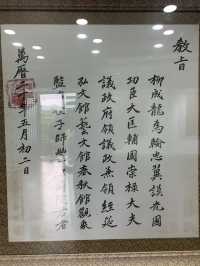 教旨
柳成龍爲輸忠翼謨光國
功臣大匡輔國崇祿大夫
議政府領議政兼領經筵
弘文館藝文館春秋館觀象
監 子師 君者
萬曆 年五月初二日